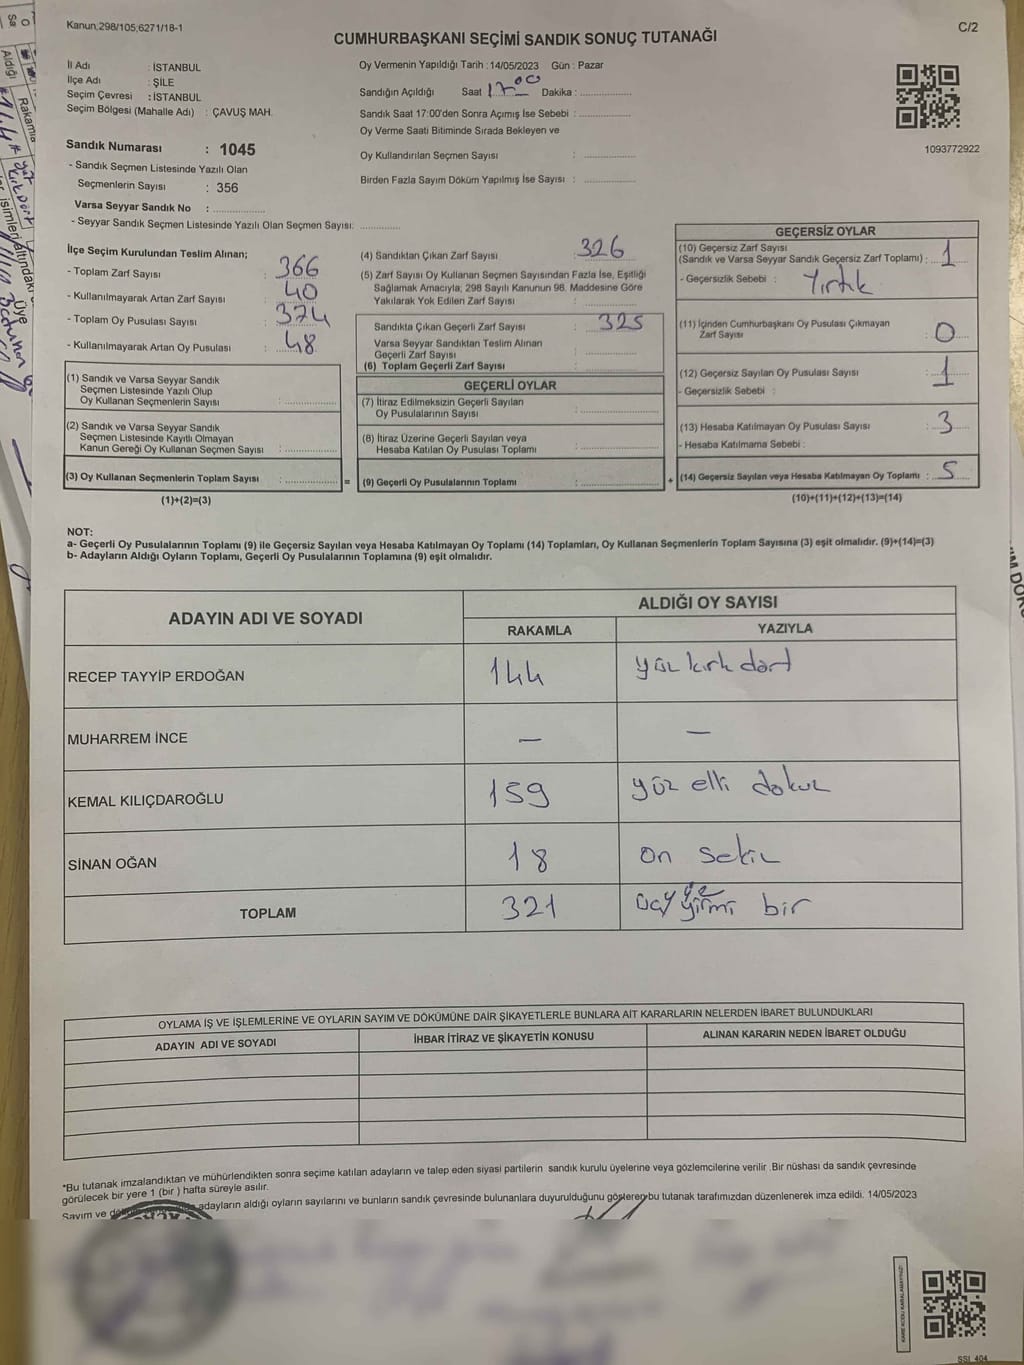 Kanun;298/105;6271/18-1
C/2
CUMHURBAŞKANI SEÇİMİ SANDIK SONUÇ TUTANAĞI
İl Adı : İSTANBUL
İlçe Adı : ŞİLE
Seçim Çevresi : İSTANBUL
Seçim Bölgesi (Mahalle Adı) : ÇAVUŞ MAH.
Sandık Numarası : 1045
- Sandık Seçmen Listesinde Yazılı Olan
Seçmenlerin Sayısı : 356
Varsa Seyyar Sandık No : ..............
- Seyyar Sandık Seçmen Listesinde Yazılı Olan Seçmen Sayısı: ............
Oy Vermenin Yapıldığı Tarih : 14/05/2023 Gün : Pazar
Sandığın Açıldığı Saat 17 00 Dakika : ..............
Sandık Saat 17:00'den Sonra Açımış İse Sebebi : ..............
Oy Verme Saati Bitiminde Sırada Bekleyen ve
Oy Kullandırılan Seçmen Sayısı : ..............
Birden Fazla Sayım Döküm Yapılmış İse Sayısı : ..............
1093772922
İlçe Seçim Kurulundan Teslim Alınan;
- Toplam Zarf Sayısı : 366
- Kullanılmayarak Artan Zarf Sayısı : 40
- Toplam Oy Pusulası Sayısı : 374
- Kullanılmayarak Artan Oy Pusulası : 48
(1) Sandık ve Varsa Seyyar Sandık
Seçmen Listesinde Yazılı Olup
Oy Kullanan Seçmenlerin Sayısı : ..............
(2) Sandık ve Varsa Seyyar Sandık
Seçmen Listesinde Kayıtlı Olmayan
Kanun Gereği Oy Kullanan Seçmen Sayısı : ..............
(3) Oy Kullanan Seçmenlerin Toplam Sayısı : .............. =
(1)+(2)=(3)
(4) Sandıktan Çıkan Zarf Sayısı : 326
(5) Zarf Sayısı Oy Kullanan Seçmen Sayısından Fazla İse, Eşitliği
Sağlamak Amacıyla; 298 Sayılı Kanunun 98. Maddesine Göre
Yakılarak Yok Edilen Zarf Sayısı : ..............
Sandıkta Çıkan Geçerli Zarf Sayısı : 325
Varsa Seyyar Sandıktan Teslim Alınan
Geçerli Zarf Sayısı : ..............
(6) Toplam Geçerli Zarf Sayısı : ..............
GEÇERLİ OYLAR
(7) İtiraz Edilmeksizin Geçerli Sayılan
Oy Pusulalarının Sayısı : ..............
(8) İtiraz Üzerine Geçerli Sayılan veya
Hesaba Katılan Oy Pusulası Toplamı : ..............
(9) Geçerli Oy Pusulalarının Toplamı : .............. +
GEÇERSİZ OYLAR
(10) Geçersiz Zarf Sayısı
(Sandık ve Varsa Seyyar Sandık Geçersiz Zarf Toplamı) : 1
- Geçersizlik Sebebi : Yırtık
(11) İçinden Cumhurbaşkanı Oy Pusulası Çıkmayan
Zarf Sayısı : 0
(12) Geçersiz Sayılan Oy Pusulası Sayısı : 1
- Geçersizlik Sebebi :
(13) Hesaba Katılmayan Oy Pusulası Sayısı : 3
- Hesaba Katılmama Sebebi :
(14) Geçersiz Sayılan veya Hesaba Katılmayan Oy Toplamı : 5
(10)+(11)+(12)+(13)=(14)
NOT:
a- Geçerli Oy Pusulalarının Toplamı (9) ile Geçersiz Sayılan veya Hesaba Katılmayan Oy Toplamı (14) Toplamları, Oy Kullanan Seçmenlerin Toplam Sayısına (3) eşit olmalıdır. (9)+(14)=(3)
b- Adayların Aldığı Oyların Toplamı, Geçerli Oy Pusulalarının Toplamına (9) eşit olmalıdır.
ADAYIN ADI VE SOYADI
ALDIĞI OY SAYISI
RAKAMLA YAZIYLA
RECEP TAYYİP ERDOĞAN 144 yüz kırk dört
MUHARREM İNCE — —
KEMAL KILIÇDAROĞLU 159 yüz elli dokuz
SİNAN OĞAN 18 on sekiz
TOPLAM 321 üçyüz yirmi bir
OYLAMA İŞ VE İŞLEMLERİNE VE OYLARIN SAYIM VE DÖKÜMÜNE DAİR ŞİKAYETLERLE BUNLARA AİT KARARLARIN NELERDEN İBARET BULUNDUKLARI
ADAYIN ADI VE SOYADI
İHBAR İTİRAZ VE ŞİKAYETİN KONUSU
ALINAN KARARIN NEDEN İBARET OLDUĞU
*Bu tutanak imzalandıktan ve mühürlendikten sonra seçime katılan adayların ve talep eden siyasi partilerin sandık kurulu üyelerine veya gözlemcilerine verilir .Bir nüshası da sandık çevresinde
görülecek bir yere 1 (bir ) hafta süreyle asılır.
Sayım ve adayların aldığı oyların sayılarını ve bunların sandık çevresinde bulunanlara duyurulduğunu gösteren bu tutanak tarafımızdan düzenlenerek imza edildi. 14/05/2023
SSI_404